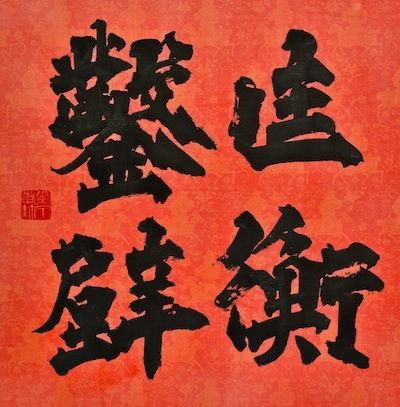 匡衡
鑿壁